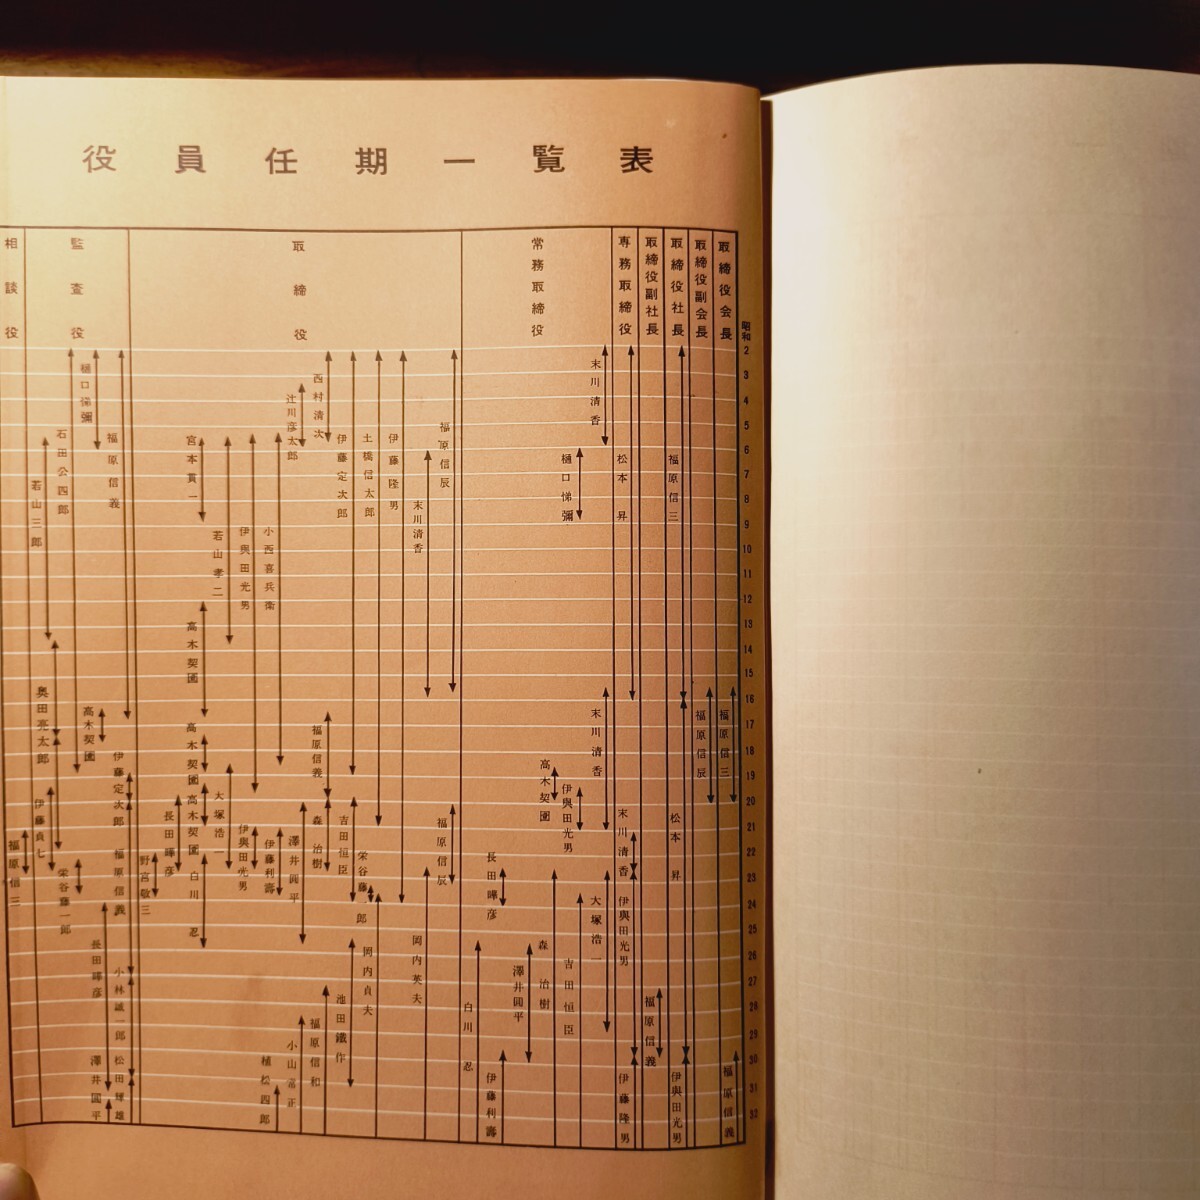 役員任期一覧表
取締役会長
福原信三
福原信義
取締役副会長
福原信辰
取締役社長
福原信三
松本昇
伊與田光男
取締役副社長
福原信義
専務取締役
松本昇
末川清香
伊與田光男
伊藤隆男
常務取締役
末川清香
樋口悌彌
末川清香
大塚浩一
伊與田光男
吉田恒臣
高木契圓
森治樹
澤井圓平
長田曄彦
伊藤利壽
白川忍
取締役
福原信辰
福原信辰
末川清香
岡内英夫
伊藤隆男
土橋信太郎
岡内貞夫
伊藤定次郎
吉田恒臣
栄谷藤一郎
池田鐵作
西村清次
福原信義
森治樹
福原信和
辻川彦太郎
澤井圓平
小山常正
小西喜兵衛
伊藤利壽
植松四郎
伊與田光男
伊與田光男
若山孝二
大塚浩一
宮本貫一
高木契圓
高木契圓
高木契圓
白川忍
長田曄彦
野宮敬三
監査役
福原信義
伊藤定次郎
福原信義
小林誠一郎
松田球雄
樋口悌彌
高木契圓
長田曄彦
澤井圓平
石田公四郎
栄谷藤一郎
若山三郎
奥田亮太郎
伊藤貞七
相談役
福原信三
昭和
2
3
4
5
6
7
8
9
10
11
12
13
14
15
16
17
18
19
20
21
22
23
24
25
26
27
28
29
30
31
32